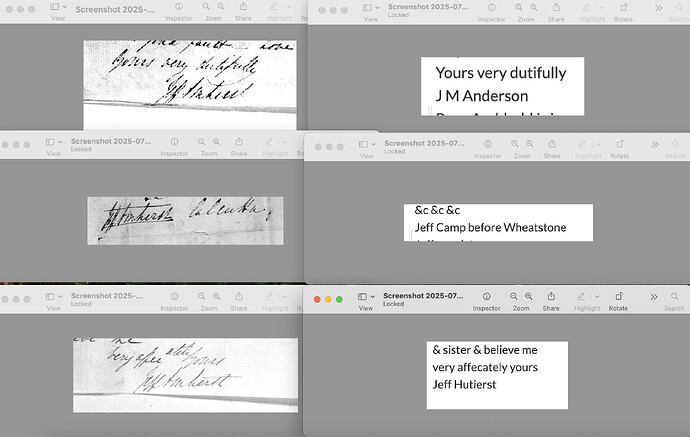 Screenshot 2025-...
View
Inspector
Zoom
Share
Highlight
Rotate
find
none
Yours very dutifully
Jeff Amherst
Screenshot 2025-07...
Locked
View
Inspector
Zoom
Share
Highlight
Rotate
Search
Yours very dutifully
J M Anderson
Screenshot 2025-07...
Locked
View
Inspector
Zoom
Share
Highlight
Jeff Amherst Calcutta
Screenshot 2025-07...
Locked
View
Inspector
Zoom
Share
Highlight
Rotate
Search
&c &c &c
Jeff Camp before Wheatstone
Screenshot 2025-...
Locked
View
Inspector
Zoom
Share
Highlight
me
very affecately yours
Jeff Amherst
Screenshot 2025-07...
Locked
View
Inspector
Zoom
Share
Highlight
Rotate
Search
& sister & believe me
very affecately yours
Jeff Hutierst